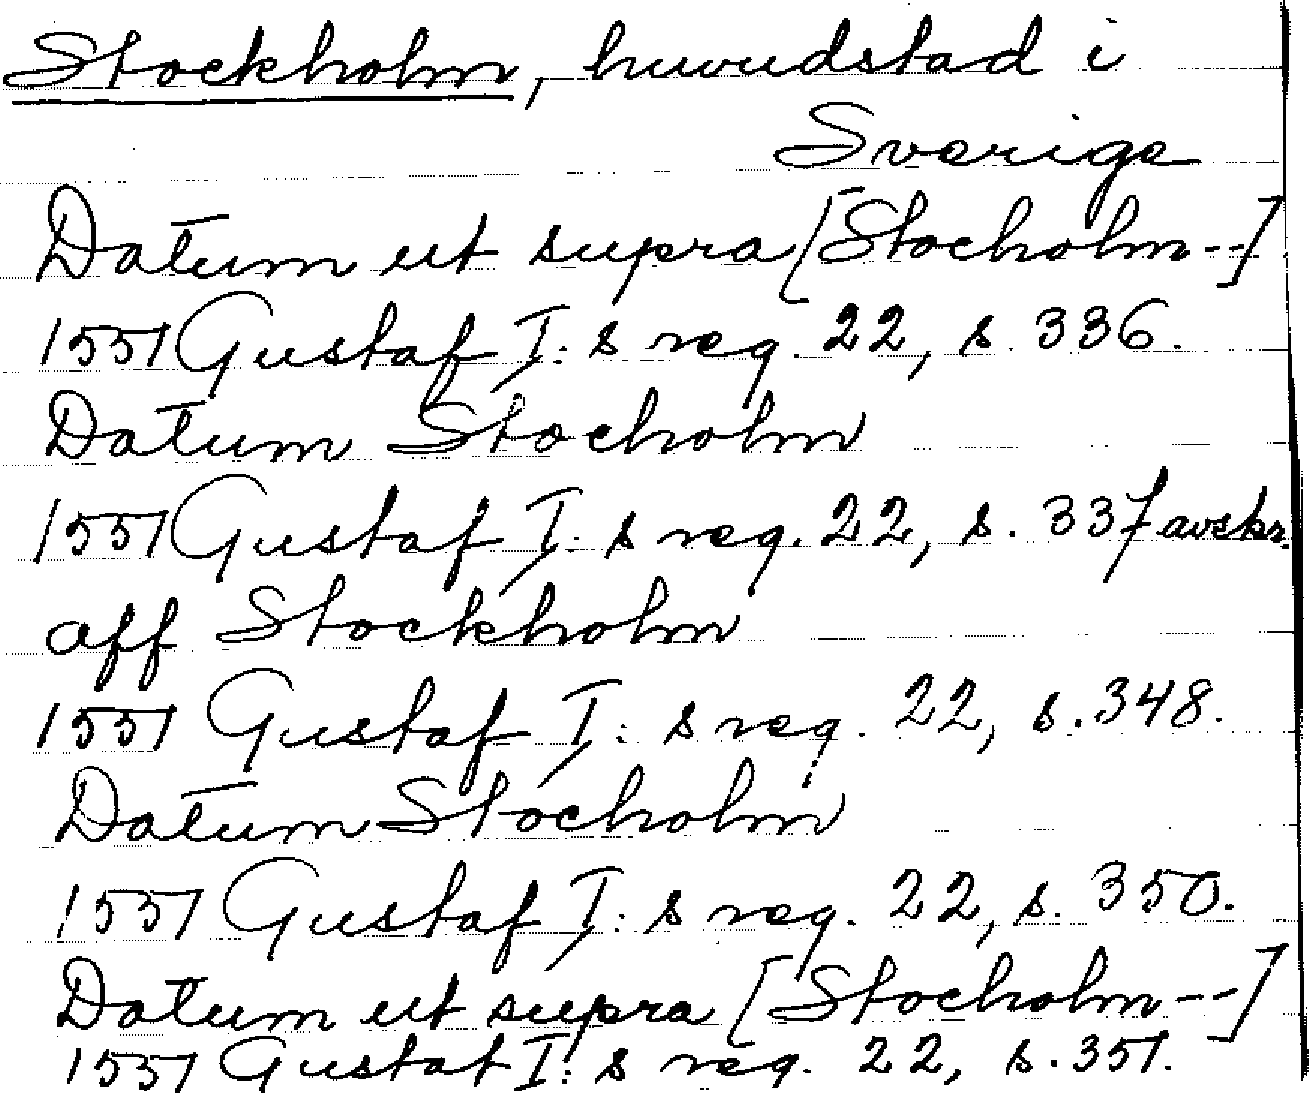 Stockholm, huvudstad i
Sverige
Datum ut supra [Stocholm--]
1551 Gustaf I:s reg. 22, s. 336.
Datum Stocholm
1551 Gustaf I:s reg. 22, s. 337 avskr.
aff Stockholm
1551 Gustaf I:s reg. 22, s. 348.
Datum Stocholm
1551 Gustaf I:s reg. 22, s. 350.
Datum ut supra [Stocholm--]
1551 Gustaf I:s reg. 22, s. 351.